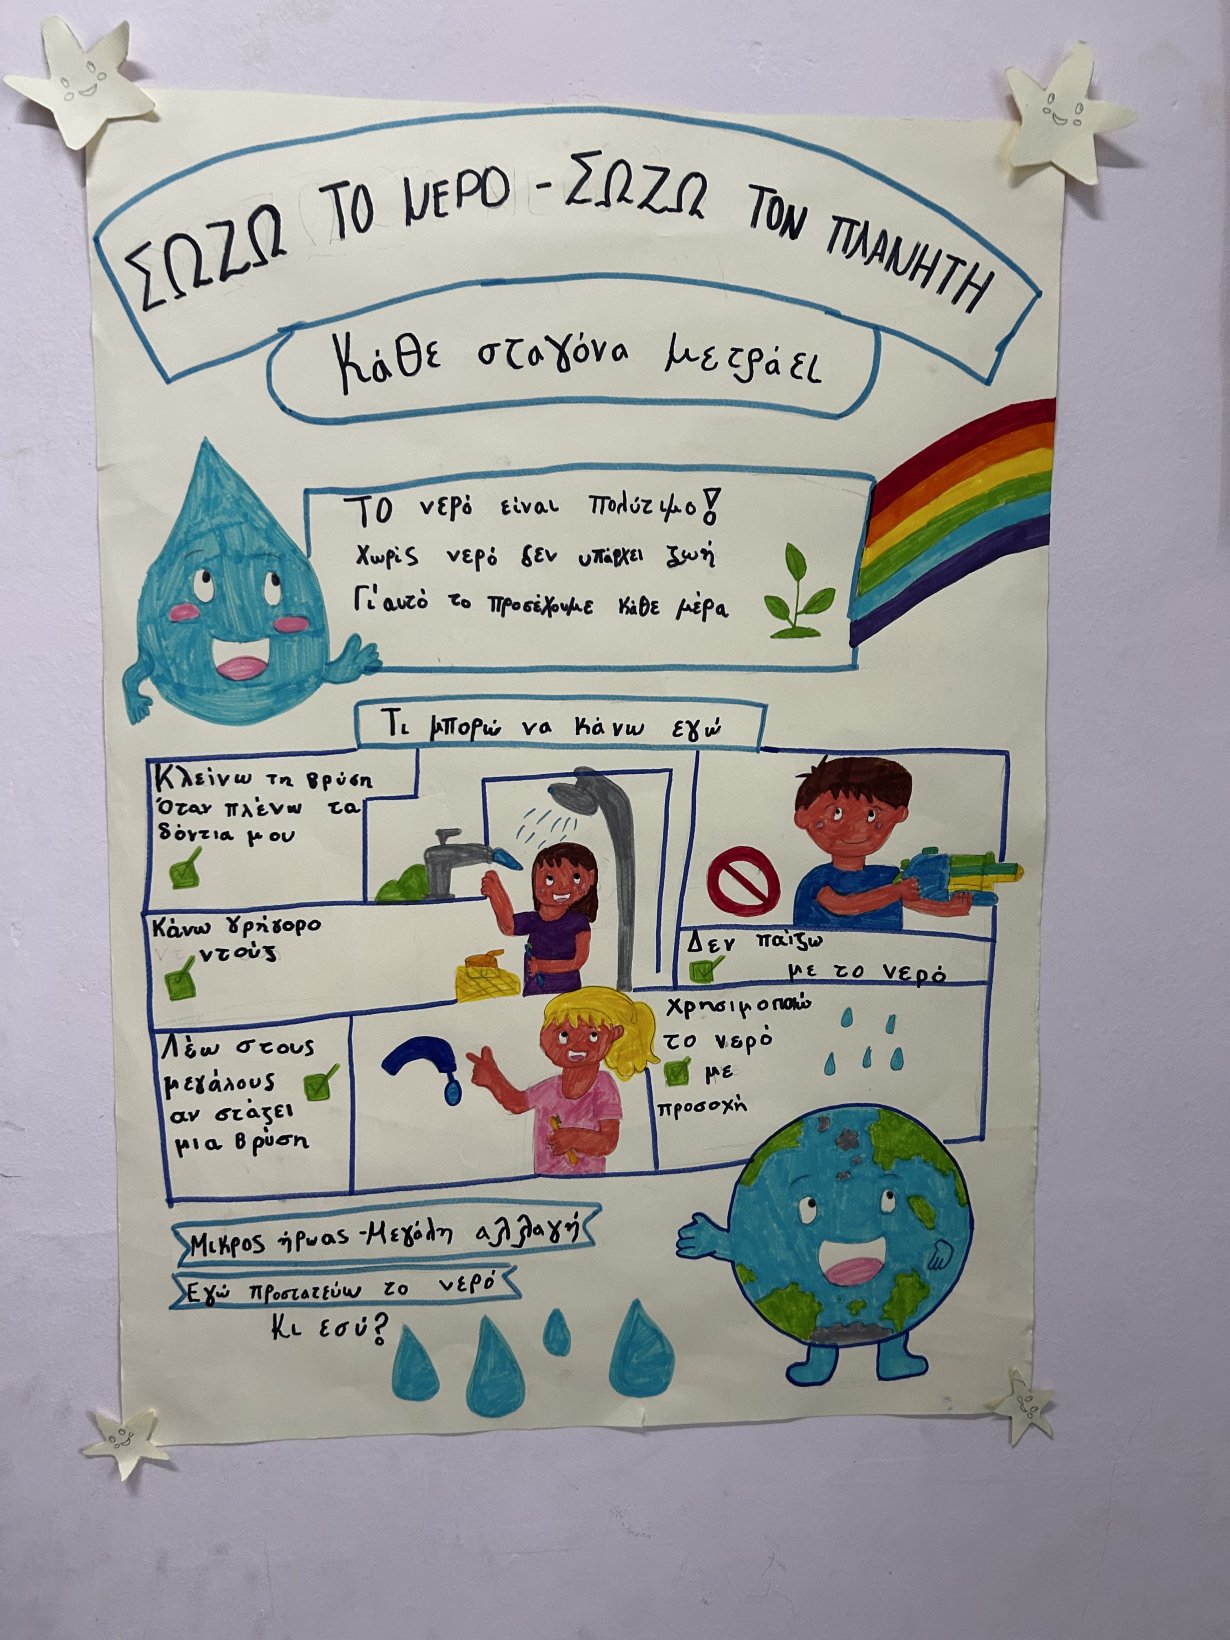 ΣΩΖΩ ΤΟ ΝΕΡΟ - ΣΩΖΩ ΤΟΝ ΠΛΑΝΗΤΗ
Κάθε σταγόνα μετράει
ΤΟ νερό είναι πολύτιμο!
Χωρίς νερό δεν υπάρχει ζωή
Γι'αυτό το προσέχουμε κάθε μέρα
Τι μπορώ να κάνω εγώ
Κλείνω τη βρύση
Όταν πλένω τα
δόντια μου
Κάνω γρήγορο
ντούζ
Δεν παίζω
με το νερό
Λέω στους
μεγάλους
αν στάζει
μια βρύση
Χρησιμοποιώ
το νερό
με
προσοχή
Μικρος ήρωας - Μεγάλη αλλαγή
Εγώ προστατεύω το νερό
Κι εσύ?